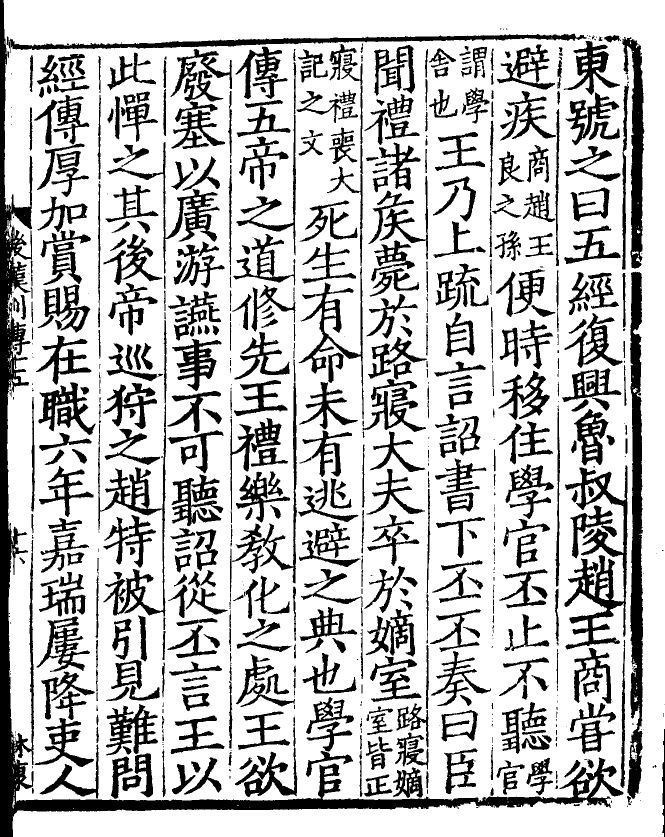 東號之曰五經復興魯叔陵趙王商甞欲
避疾商趙王良之孫便時移住學官丕止不聽學官
謂學舍也王乃上疏自言詔書下丕丕奏曰臣
聞禮諸侯薨於路寢大夫卒於嫡室路寢嫡室皆正
寢禮喪大記之文死生有命未有逃避之典也學官
傳五帝之道修先王禮樂教化之處王欲
廢塞以廣游讌事不可聽詔從丕言王以
此憚之其後帝巡狩之趙特被引見難問
經傳厚加賞賜在職六年嘉瑞屢降吏人
後漢列傳十五